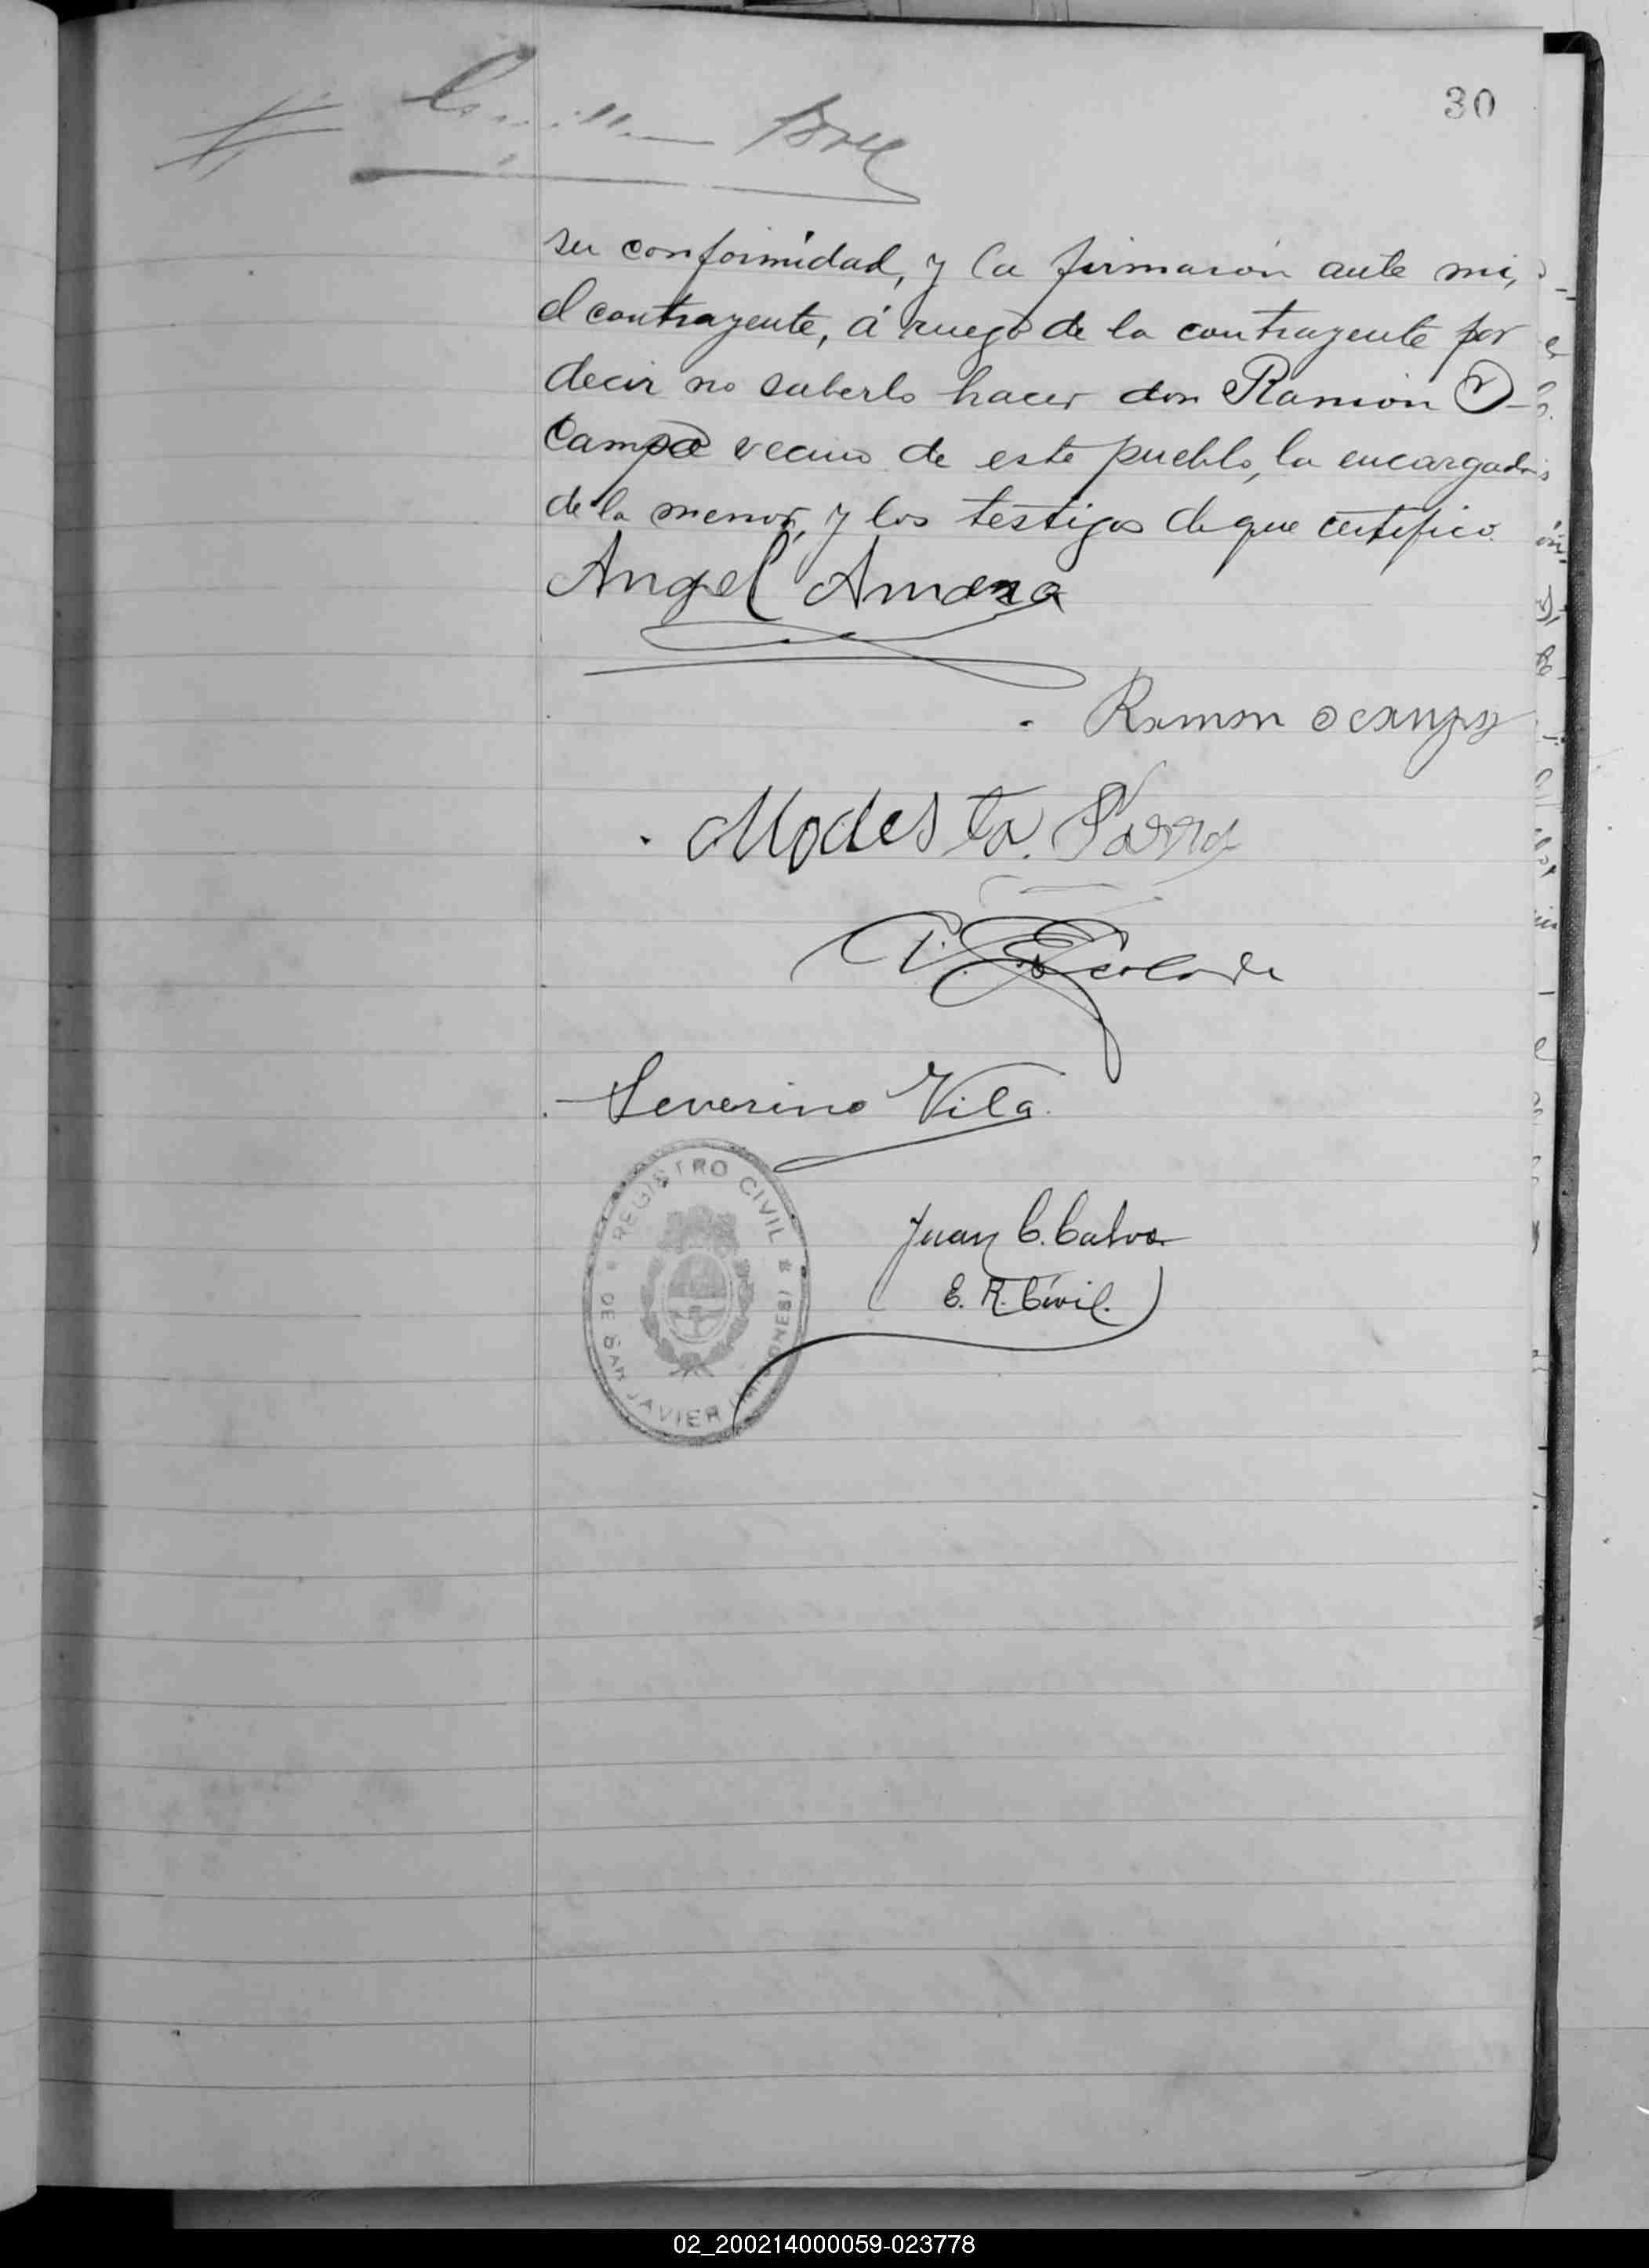 30
su conformidad, y la firmaron ante mi,
el contrayente, á ruego de la contrayente por
decir no saberlo hacer don Ramón O-
campo vecino de este pueblo, la encargada
de la menor, y los testigos de que certifico.
Angel Amara
Ramon ocampo
Modesta
Severino Vila.
REGISTRO CIVIL
DE SAN JAVIER (MISIONES)
Juan C. Calvo
E. R. Civil.
02_200214000059-023778